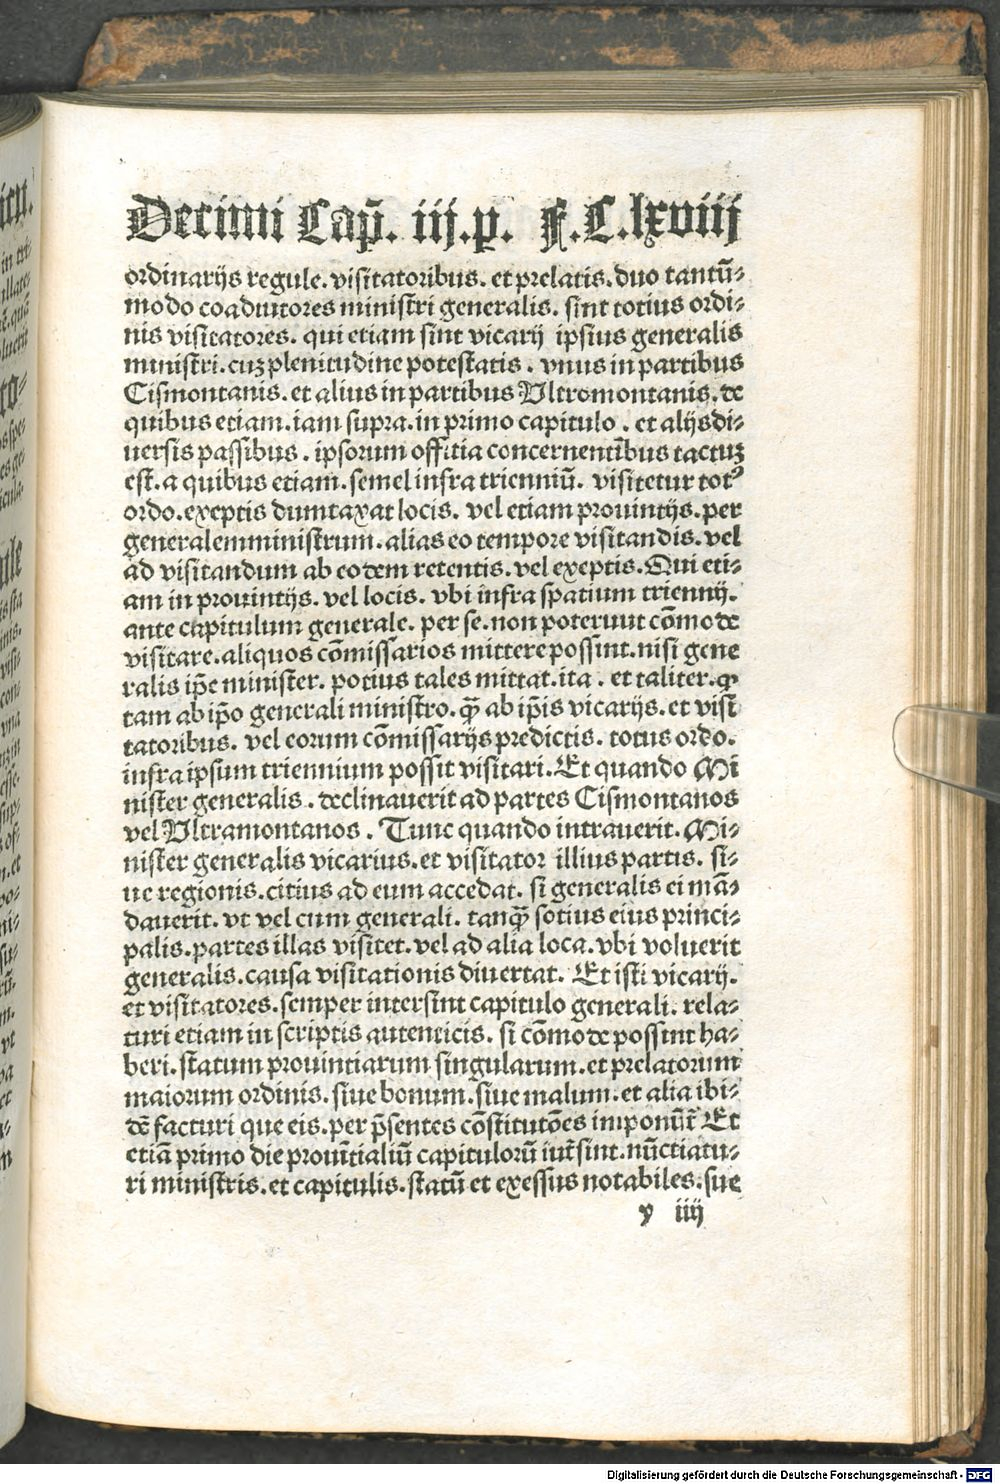 Decimi Cap̄. iij.p. F.C.lxviij
ordinarijs regule. visitatoribus. et prelatis. duo tantū⸗
modo coadiutores ministri generalis. sint totius ordi⸗
nis visitatores. qui etiam sint vicarij ipsius generalis
ministri. cuz plenitudine potestatis. vnus in partibus
Cismontanis. et alius in partibus Vltromontanis. de
quibus etiam. iam supra. in primo capitulo. et alijs di⸗
uersis passibus. ipsorum offitia concernentib̄us tactuz
est. a quibus etiam. semel infra trienniū. visitetur totꝰ
ordo. exeptis dumtaxat locis. vel etiam prouintijs. per
generalem ministrum. alias eo tempore visitandis. vel
ad visitandum ab eodem retentis. vel exeptis. Qui eti⸗
am in prouintijs. vel locis. vbi infra spatium triennij.
ante capitulum generale. per se. non poteruut cōmode
visitare. aliquos cōmissarios mittere possint. nisi gene
ralis ip̄e minister. potius tales mittat. ita. et taliter. ꝙ
tam ab ip̄o generali ministro. q̄ȝ ab ip̄is vicarijs. et visi
tatoribus. vel eorum cōmissarijs predictis. totus ordo.
infra ipsum triennium possit visitari. Et quando Mi
nister generalis. declinauerit ad partes Cismontanos
vel Vltramontanos. Tunc quando intrauerit. Mi⸗
nister generalis vicarius. et visitator illius partis. si⸗
ue regionis. citius ad eum accedat. si generalis ei mā⸗
dauerit. vt vel cum generali. tanq̄ȝ sotius eius princi⸗
palis. partes illas visitet. vel ad alia loca. vbi voluerit
generalis. causa visitationis diuertat. Et isti vicarij.
et visitatores. semper intersint capitulo generali. rela⸗
turi etiam in scriptis autenticis. si cōmode possint ha⸗
beri. statum prouintiarum singularum. et prelatorum
maiorum ordinis. siue bonum. siue malum. et alia ibi⸗
dē facturi que eis. per p̄sentes cōstitutōes imponūt̄ Et
etiā primo die prouītialiū capitulorū iut̄sint. nūctiatu⸗
ri ministris. et capitulis. statū et exessus notabiles. sue
y iiij
Digitalisierung gefördert durch die Deutsche Forschungsgemeinschaft - DFG